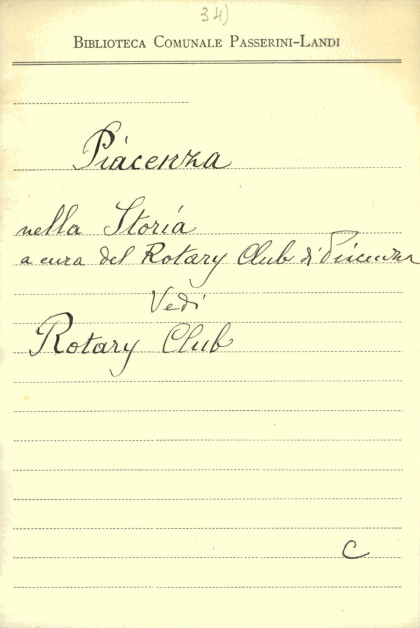 34)
BIBLIOTECA COMUNALE PASSERINI-LANDI
Piacenza
nella Storia
a cura del Rotary Club di Piacenza
Vedi
Rotary Club
C